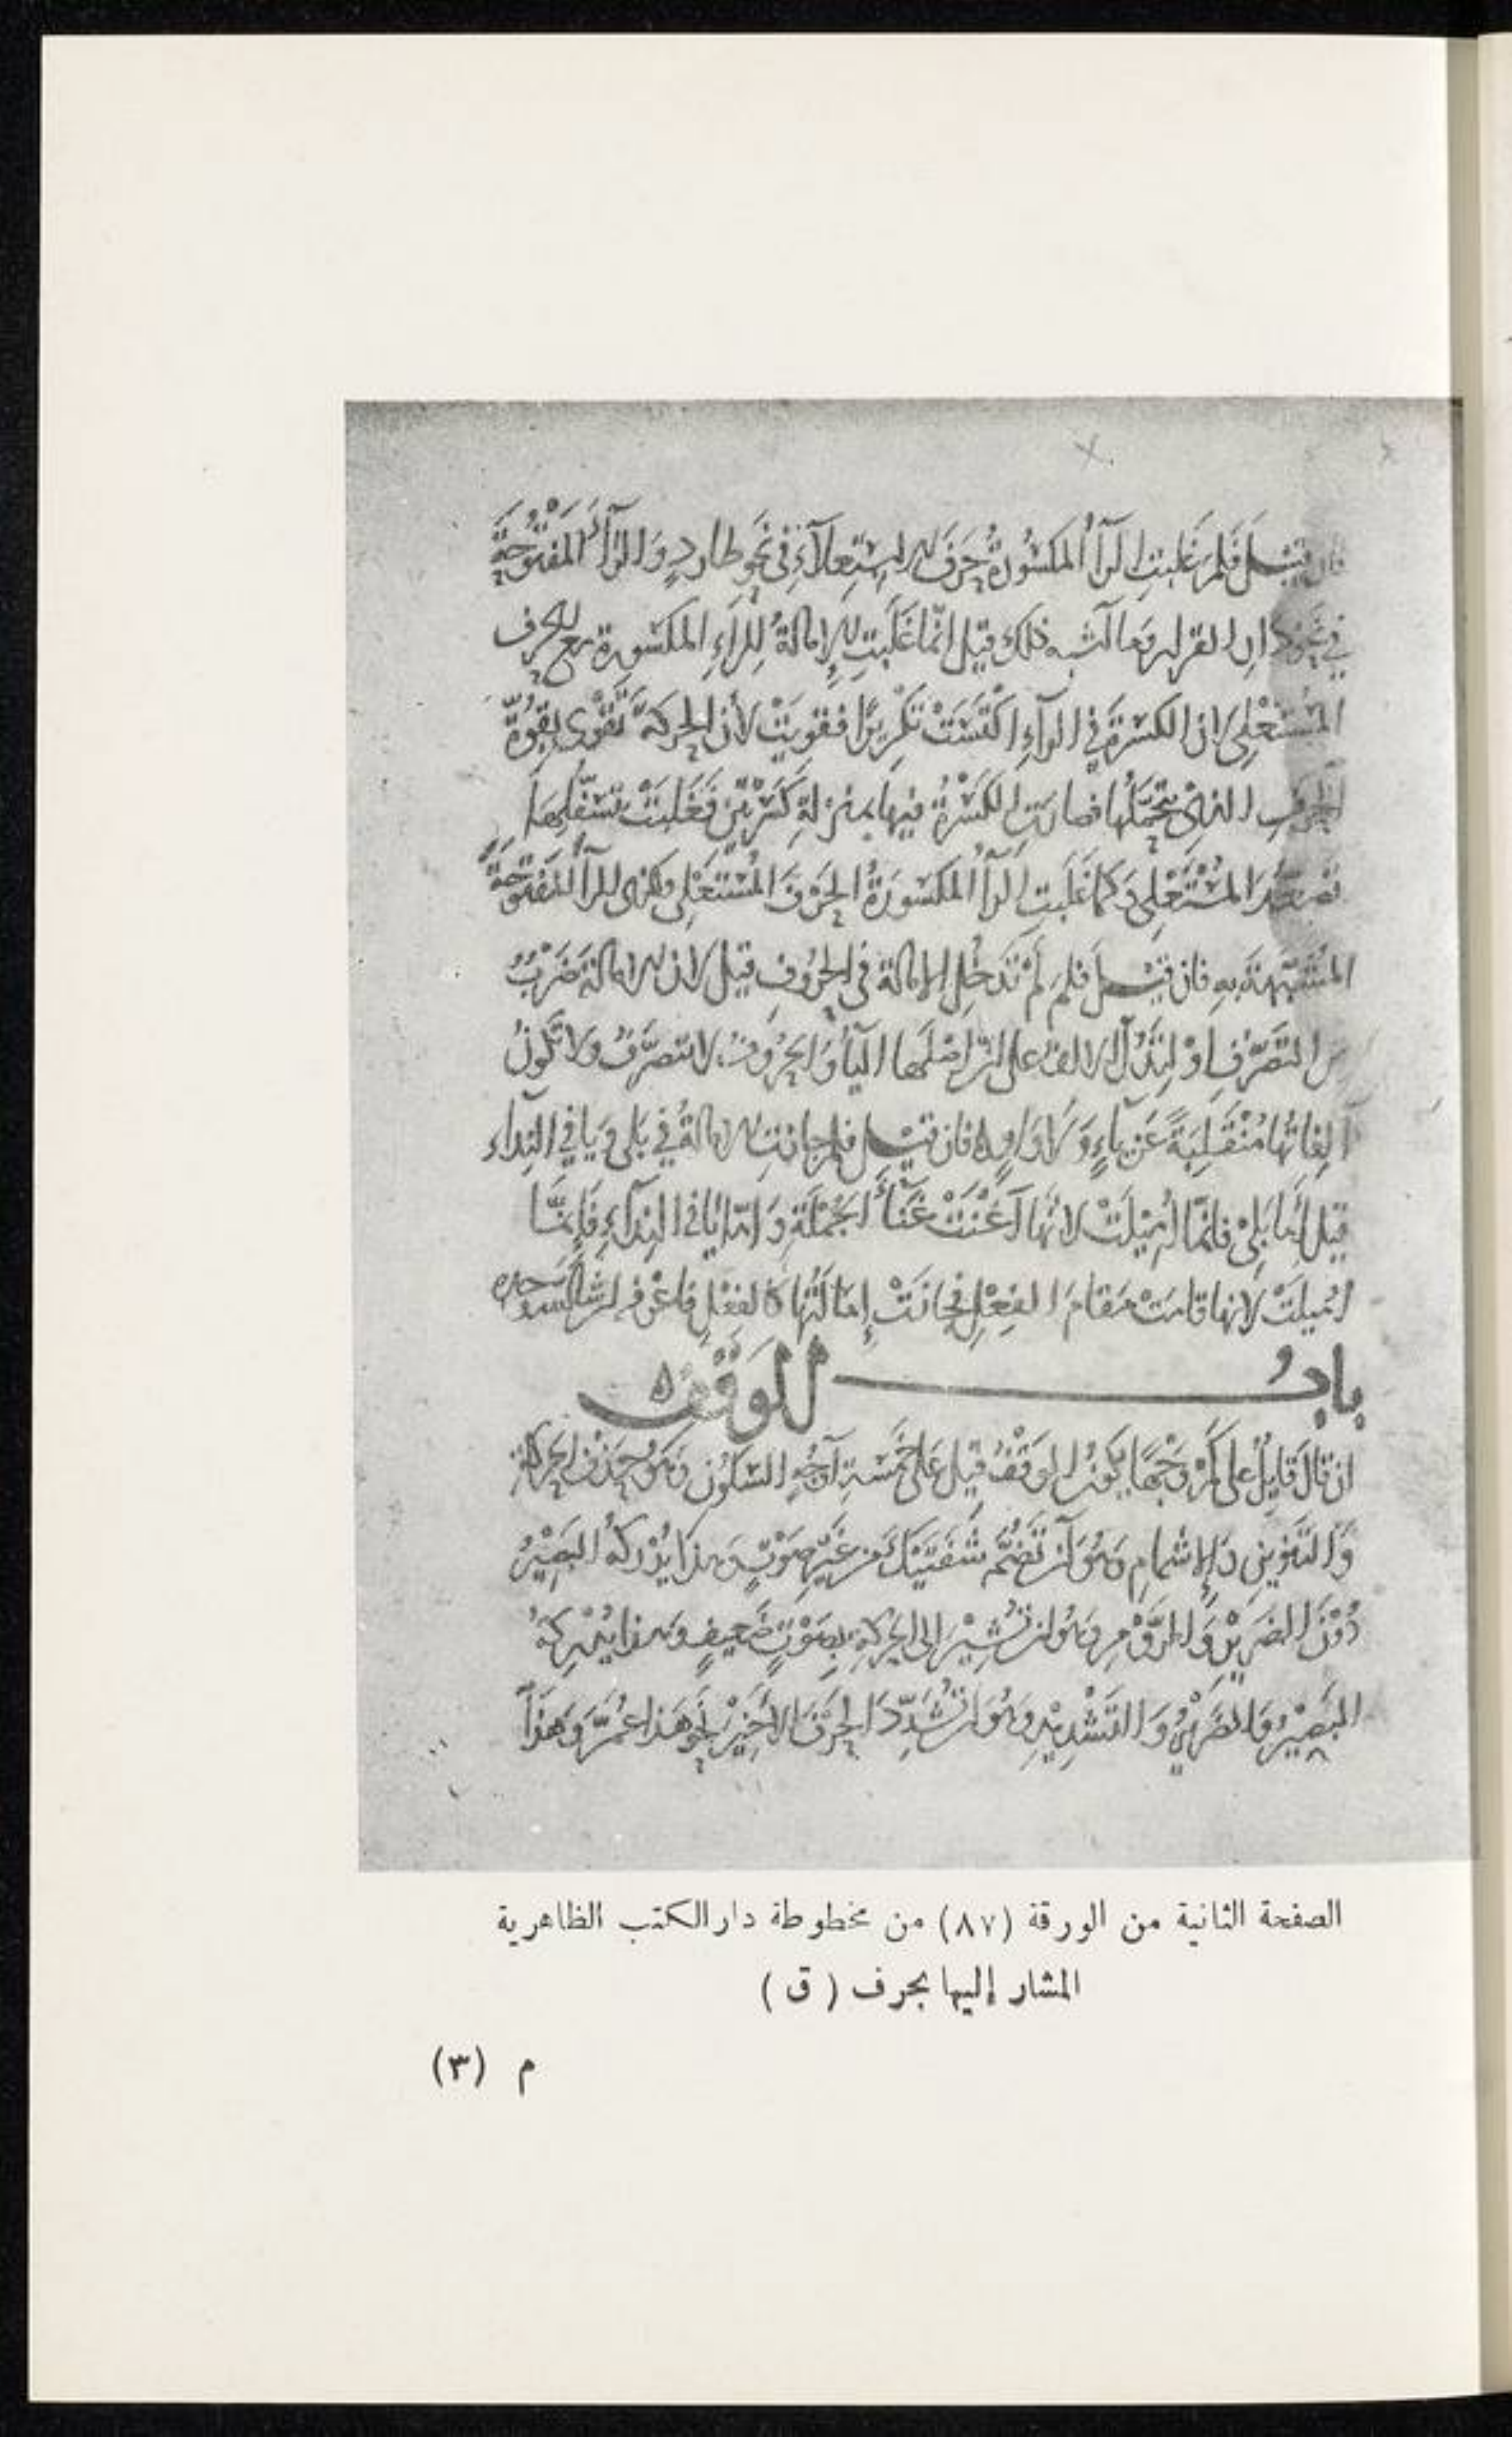 فان قيل فلم غلبت الرآءُ المكسُورةُ حَرفَ الاستِعلآءِ في نحوِ طاردٍ وَالرآءَ المَفْتُوحَةَ
في نحو دار القرار وما اشبه ذلك قيل انّما غَلَبَتِ الإمالةُ لِلرآءِ المكسُورة مع الحرف
المُسْتَعْلِى لان الكسرةَ في الرآءِ اكْتَسَبَتْ تَكْريرًا فقويَتْ لأن الحركةَ تَقْوى بقُوّةِ
الحرفِ الذى يتحمّلُها فصارتِ الكَسْرةُ فيها بمنزلةِ كَسْرتَيْنِ فَغَلَبَتْ بتسَفُّلِها
تصعُّدَ المُسْتَعْلِى وَكما غَلَبتِ الرآءُ المكسُورَةُ الحَرْفَ المُسْتَعْلِى فكذلك الرآءَ المَفتُوحةَ
المُشَبَّهةَ بهِ فان قيل فَلِمَ لمْ تَدخُلِ الإمالةُ في الحُرُوفِ قيل لان الامالةَ ضَرْبٌ
من التَصَرُّفِ اوْ لِتَدُلَّ الالفُ على ان اصْلَها اليآءُ وَالحُرُوفُ لا تتصرَّفُ وَلا تكُونُ
ألِفاتُها مُنْقَلِبَةً عَنْ يآءٍ وَلا واوٍ ٥ فان قيل فلم جازتِ الامالةُ في بَلى وَيا في النِداء
قيل أمّا بَلى فانّما اُمِيلَتْ لانّها أغْنَتْ غَنآءَ الجُمْلَةِ وَامّا يا في النِدآءِ فَإِنَّما
اُمِيلَتْ لانها قامَتْ مَقامَ الفِعْلِ فجازَتْ إمَالَتُها كالفعْلِ فاعْرفه ان شاء الله وحده
بابُ الوَقْفِ ٥
ان قالَ قايِلٌ على كَمْ وَجْهًا يكونُ الوَقْفُ قِيلَ عَلى خَمْسَةِ أوْجُهٍ السّكُون وَهُوَ حَذْفُ الحركةِ
وَالتنوينِ وَالإشمامِ وَهُوَ أن تَضُمَّ شَفَتَيْكَ مِن غَيْرِ صَوْتٍ وهذا يُدْركُهُ البَصِيْرُ
دُوْنَ الضَرِيْرِ وَالرَّوْمِ وَهُوَ ان تُشِيْرَ الى الحركةِ بِصَوْتٍ ضَعِيفٍ وَهذا يُدْرِكهُ
البَصِيْرُ وَالضَرِيْرُ وَالتَشْدِيْدِ وَهُوَ ان تُشَدِّدَ الحَرْفَ الاخِيْرَ نحو هَذا عُمَرّ وَهَذا
الصفحة الثانية من الورقة (٨٧) من مخطوطة دار الكتب الظاهرية
المشار إليها بحرف ( ق )
م (٣)